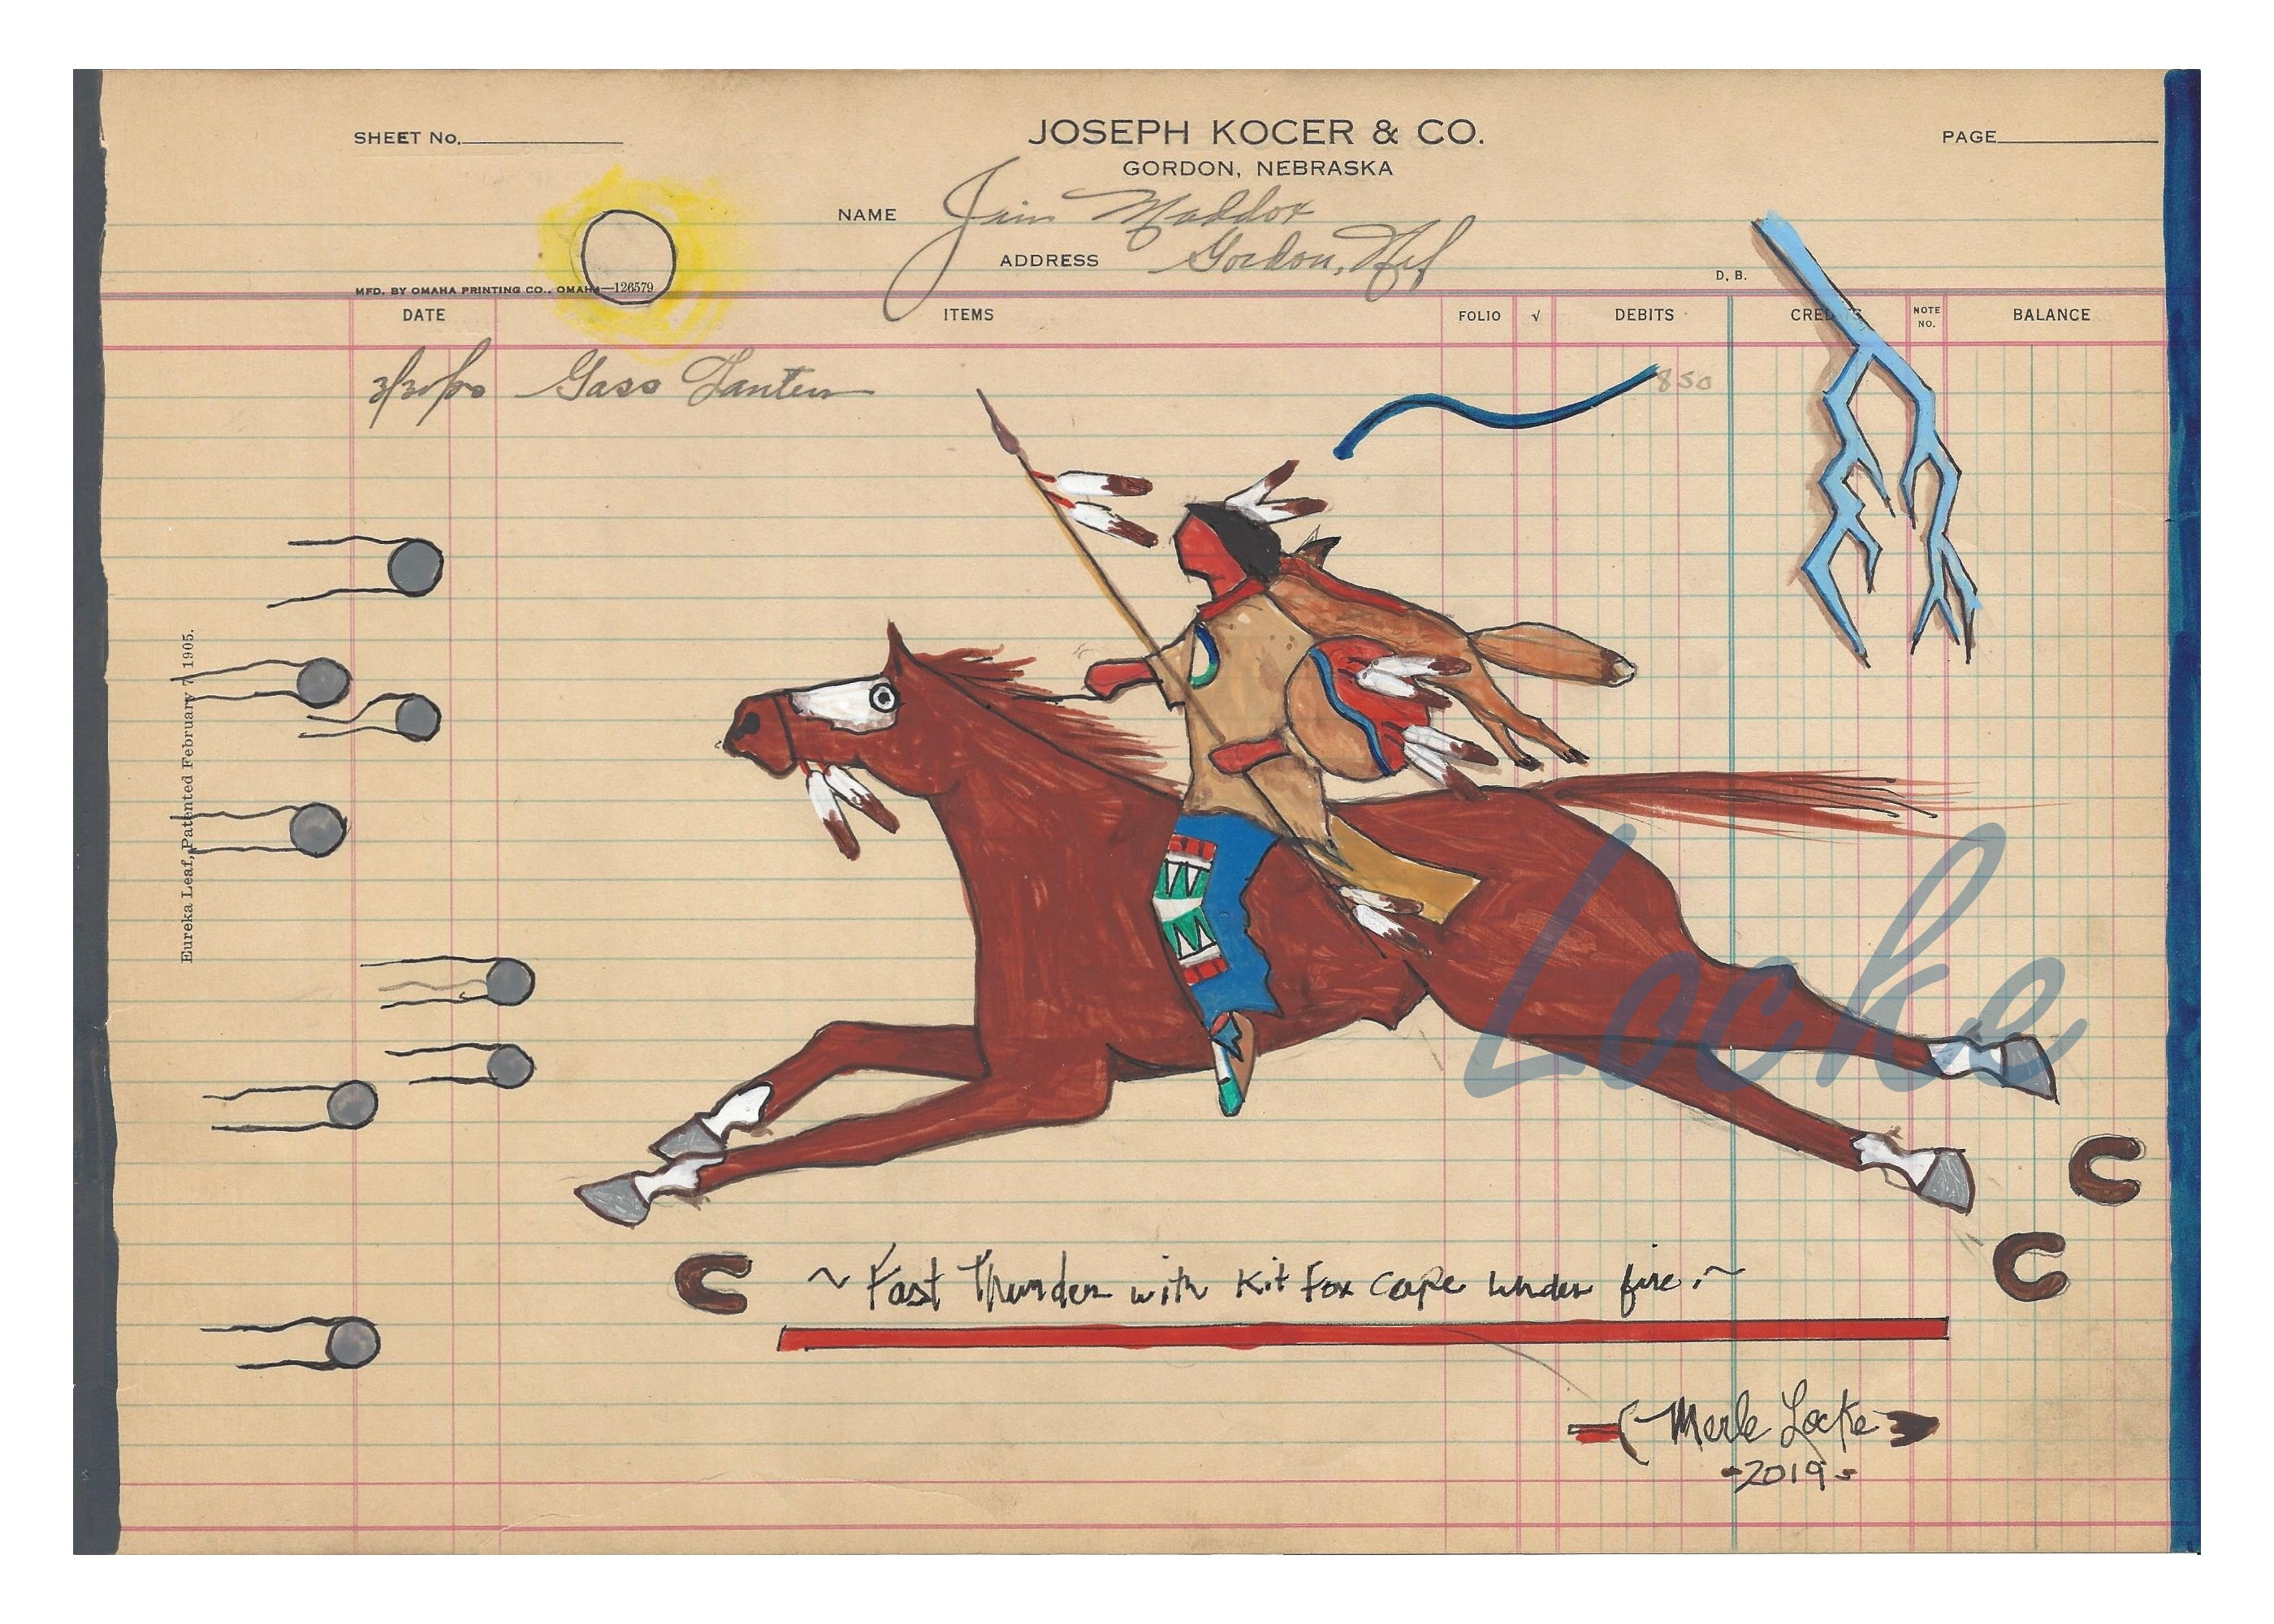 SHEET No.
JOSEPH KOCER & CO.
PAGE
GORDON, NEBRASKA
NAME Jim Maddox
ADDRESS Gordon, Neb
D, B.
MFD. BY OMAHA PRINTING CO., OMAHA—126579
DATE ITEMS FOLIO √ DEBITS CREDITS NOTE NO. BALANCE
Gass Lantern 850
Eureka Leaf, Patented February 7 1905.
Locke
~ Fast Thunder with Kit Fox Cape Under fire. ~
Merle Locke
-2019-